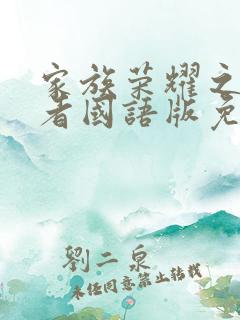 家族荣耀之
看國語版免
劉二泉
未经同意禁止转载